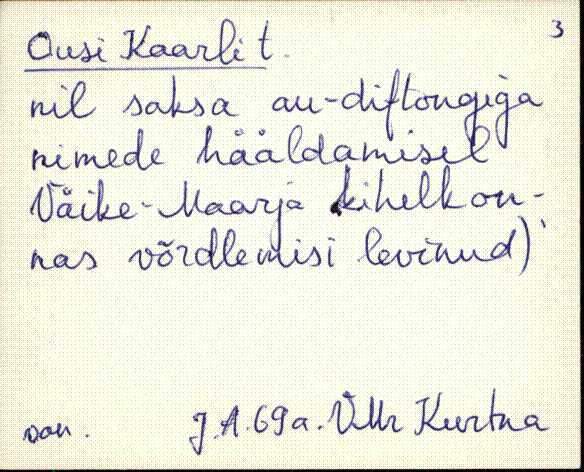 3
Ousi Kaarli t.
nil saksa au-diftongiga
nimede hääldamisel
Väike-Maarja kihelkon-
nas võrdlemisi levinud)
van. J.A. 69 a. VMr Kurtna